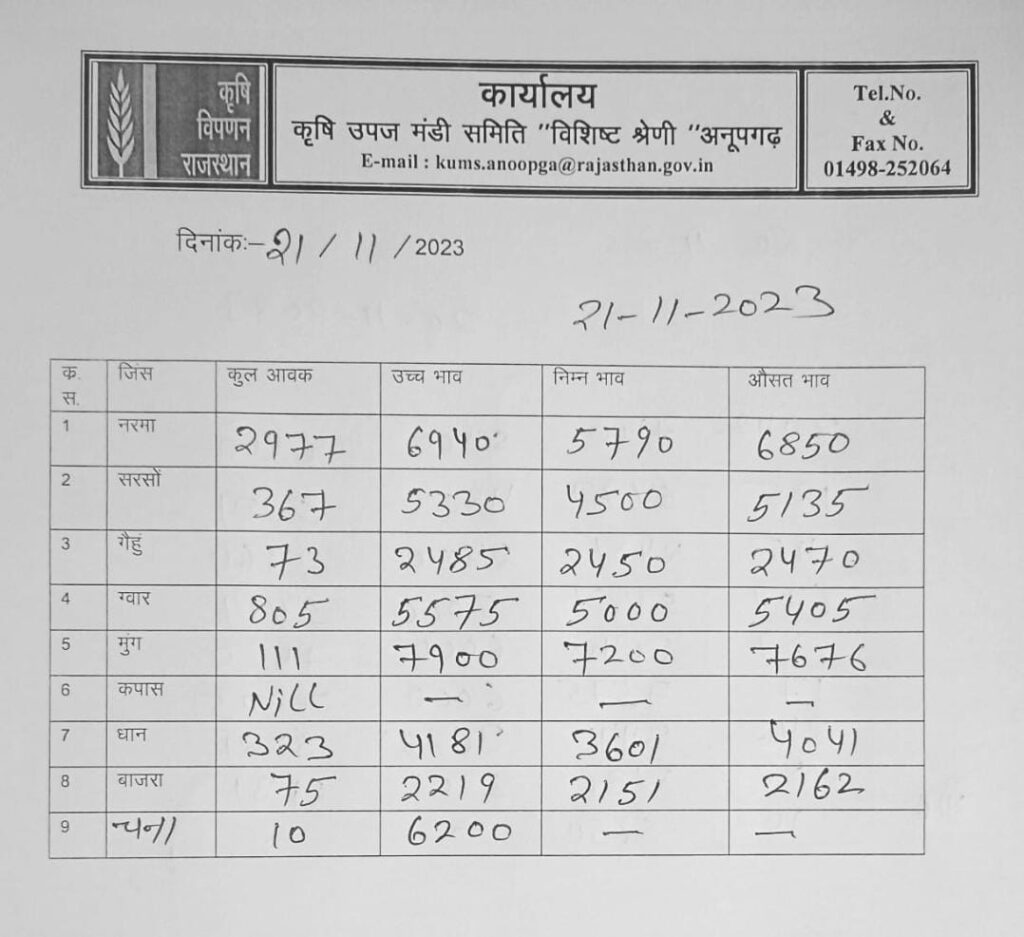 कृषि
विपणन
राजस्थान
कार्यालय
कृषि उपज मंडी समिति "विशिष्ट श्रेणी "अनूपगढ़
E-mail : kums.anoopga@rajasthan.gov.in
Tel.No.
&
Fax No.
01498-252064
दिनांकः-21/11/2023
21-11-2023
क. स. जिंस कुल आवक उच्च भाव निम्न भाव औसत भाव
1 नरमा 2977 6940 5790 6850
2 सरसों 367 5330 4500 5135
3 गैहुं 73 2485 2450 2470
4 ग्वार 805 5575 5000 5405
5 मुंग 111 7900 7200 7676
6 कपास Nill — — —
7 धान 323 4181 3601 4041
8 बाजरा 75 2219 2151 2162
9 चना 10 6200 — —